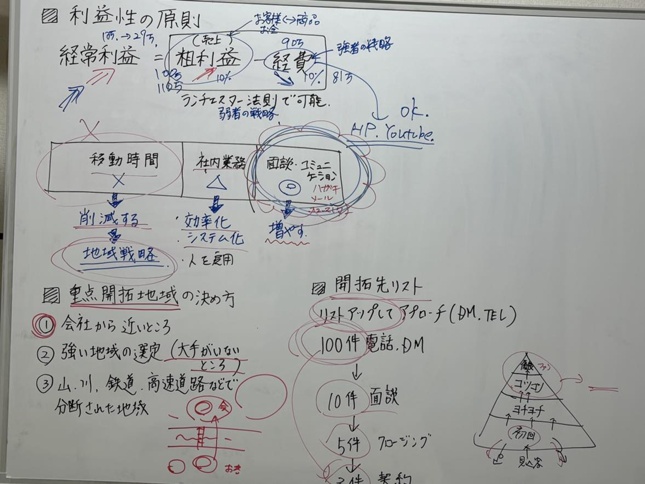 利益性の原則
1万→29万
お客様↔商品
お金
売上
90万
強者の戦略
経常利益 = 粗利益 - 経費
100万
110万
10%
10%
81万
ランチェスター法則で可能
弱者の戦略
OK.
HP.Youtube.
移動時間
社内業務
面談・コミュニケーション
ハガキ
メール
削減する
・効率化
システム化
増やす
地域戦略
・人を雇用
重点開拓地域の決め方
① 会社から近いところ
② 強い地域の選定(大手がいない
ところ)
③ 山、川、鉄道、高速道路などで
分断された地域
開拓先リスト
リストアップしてアプローチ(DM.TEL)
100件 電話.DM
10件 面談
5件 クロージング
契約
コツコツ
ヨチヨチ
初回
見込客